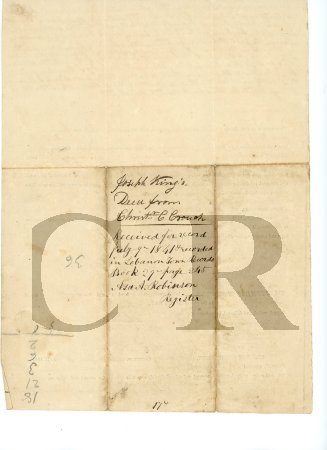 Joseph King's
Deed from
Christr. C. Crouch
Received for record
July 9th 1841 & recorded
in Lebanon Town Records
Book 29th page 245
Asa A. Robinson
Register
36
CR